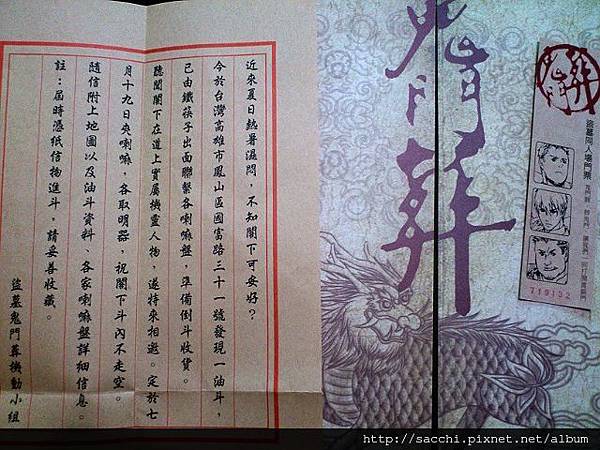 近來夏日熱暑濕悶，不知閣下可安好？
今於台灣高雄市鳳山區國富路三十一號發現一油斗，
已由鐵筷子出面聯繫各喇嘛盤，準備倒斗收貨。
聽聞閣下在道上實屬機靈人物，遂特來相邀。定於七
月十九日夾喇嘛，各取明器，祝閣下斗內不走空。
隨信附上地圖以及油斗資料、各家喇嘛盤詳細信息。
註：屆時憑紙信物進斗，請妥善收藏。
盜墓鬼門葬機動小組
鬼門葬
盜墓同人場門票
719152
http://sacchi.pixnet.net/album